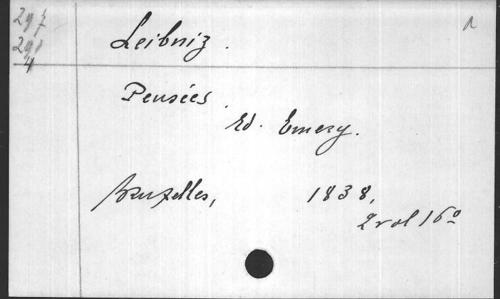 Leibniz.
Pensées.
Ed. Emery.
Bruxelles, 1838,
2 vol 16º